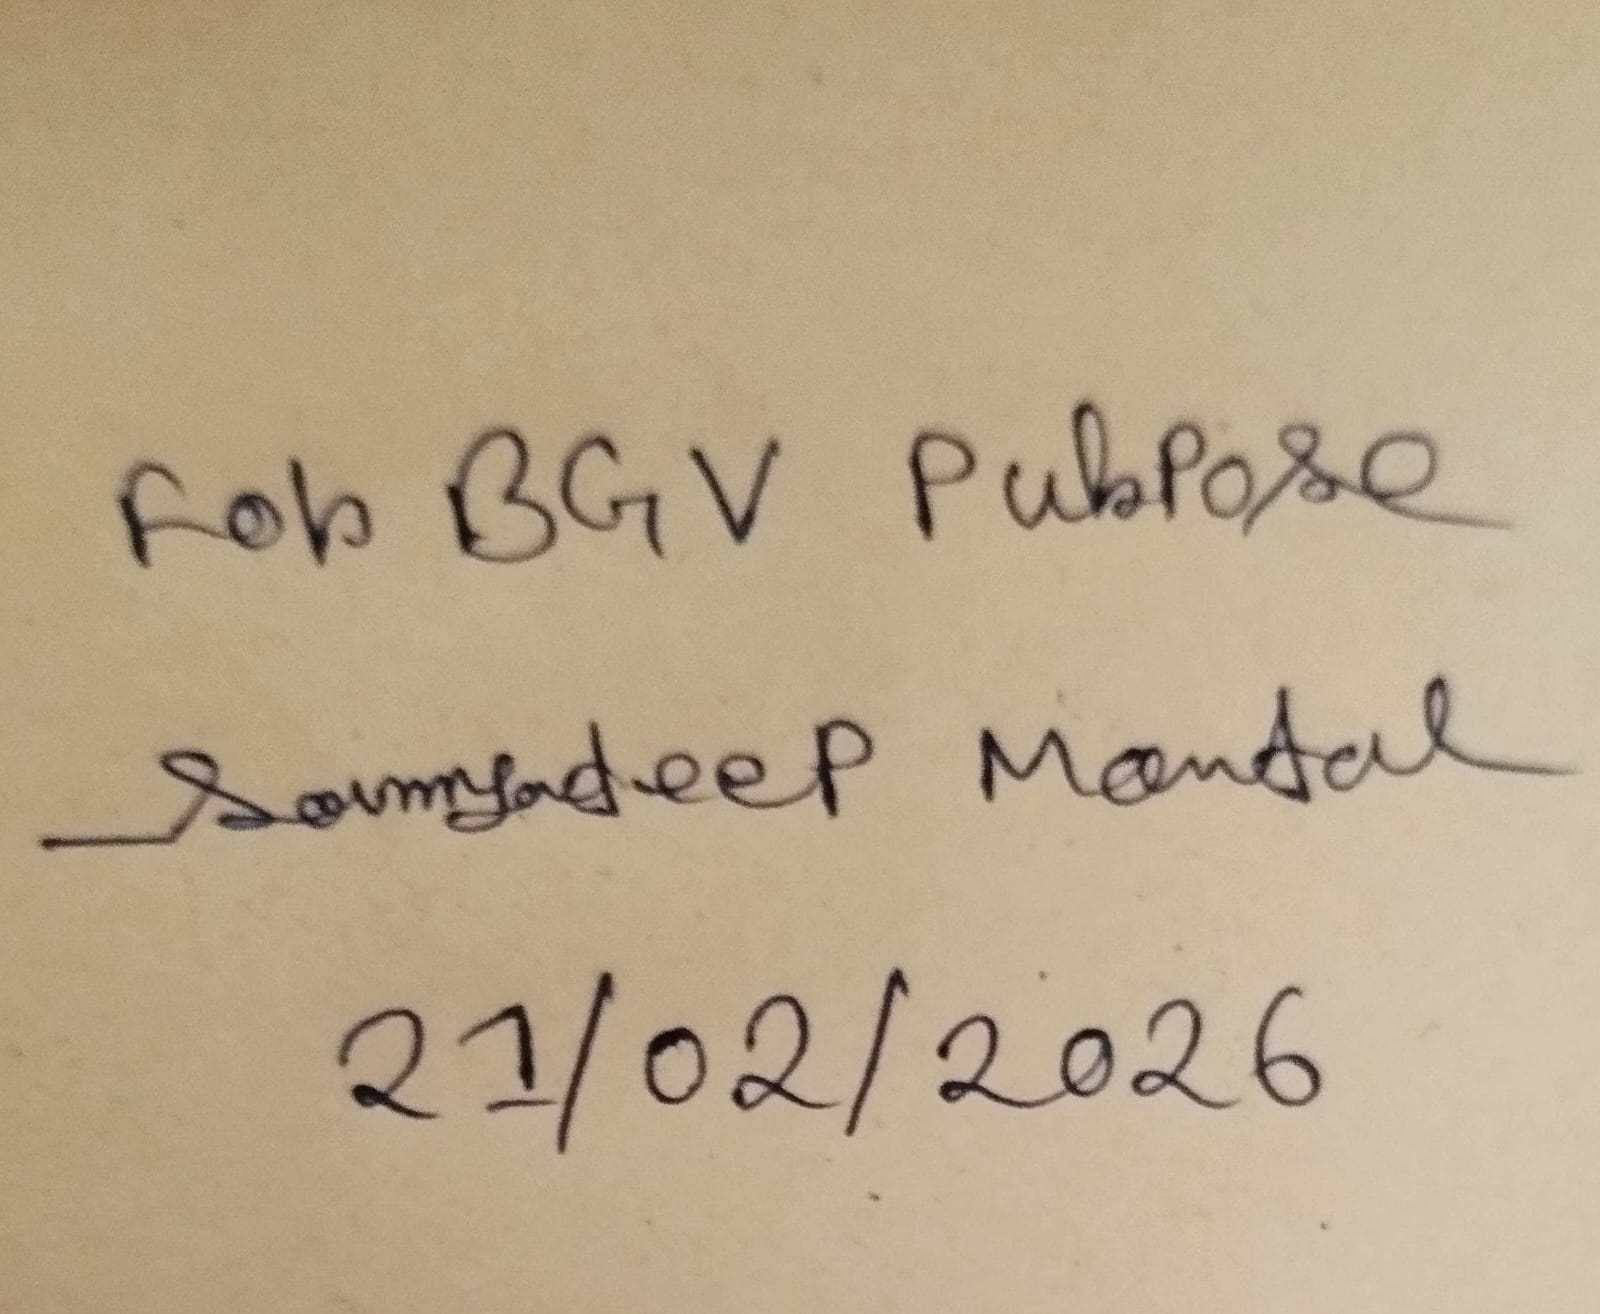 For BGV Purpose
Soumyadeep Mandal
21/02/2026